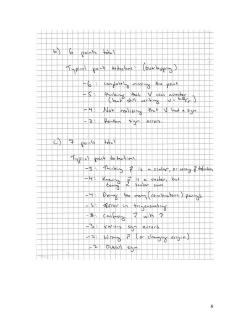 b) 6 points total
Typical point deductions: (overlapping)
-6: completely missing the point
-5: thinking that V was number
(but still writing
-4: Not realizing that V had a sign
-2: Random sign errors
c) 7 points total
Typical point deductions
-5: Thinking is a scalar, or wrong
-4: Knowing is a vector, but
doing a scalar sum
-4: Doing the wrong pairings
-3: Error in trigonometry
-3: Confusing with ?
-2: Various sign errors
-2: Wrong (or changing origin)
-2: Overall sign